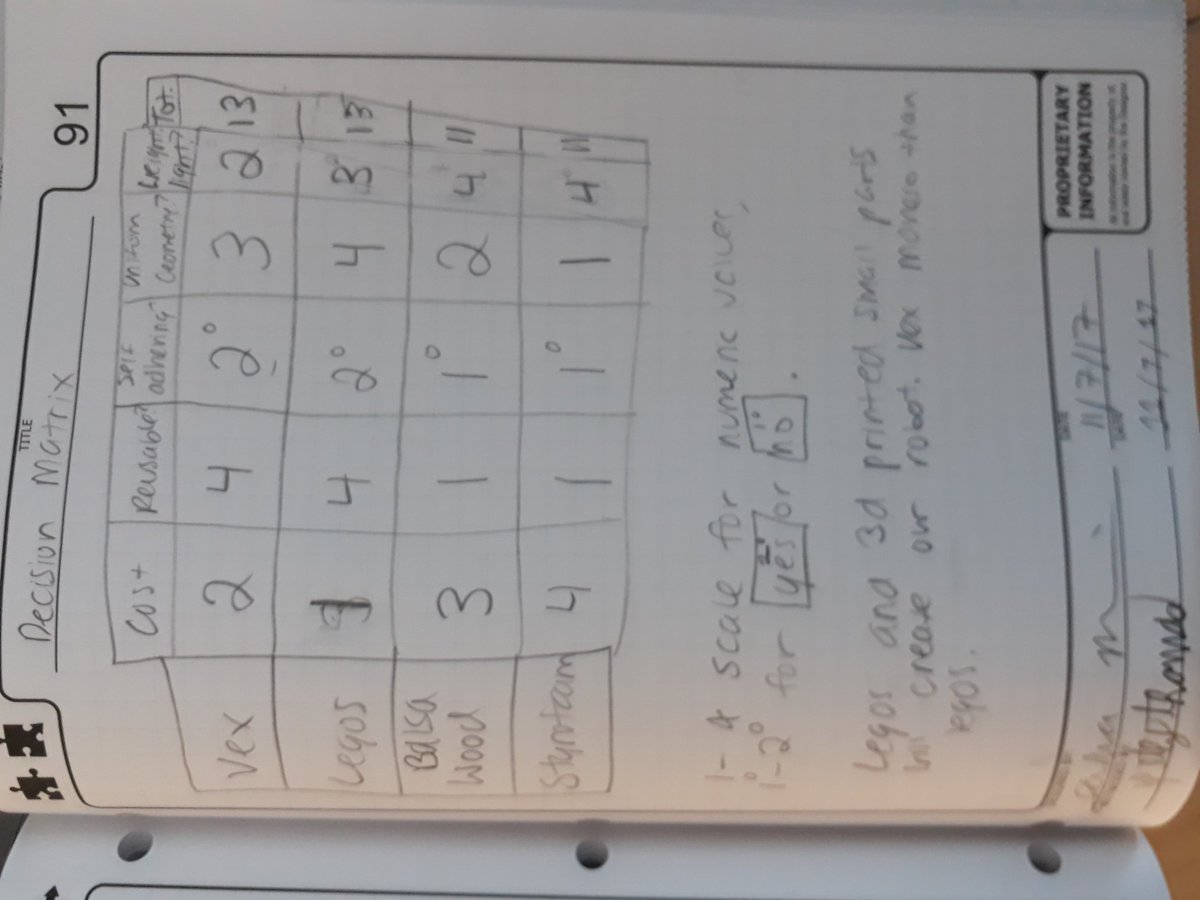 TITLE
91
Decision Matrix
Cost Reusable? Self adhering? Uniform Geometry? Weight? light? Tot.
Vex 2 4 2° 3 2 13
Legos 4 2° 4 3° 13
Balsa Wood 3 1 1° 2 4 11
Styrofoam 4 1 1° 1 4° 11
1-4 scale for numeric values,
1°-2° for yes or no.
Legos and 3d printed small parts
will crease our robot. Vex more than
legos.
DATE
11/7/17
DATE
11/7/17
PROPRIETARY
INFORMATION